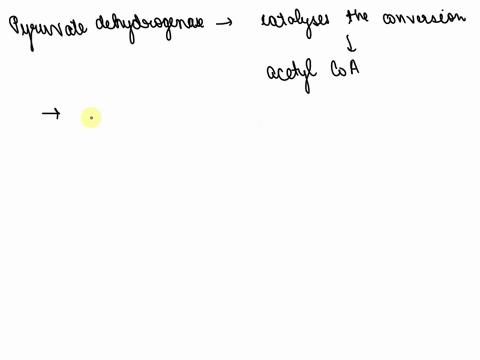 Pyruvate dehydrogenase → catalyses the conversion
↓
acetyl CoA
→